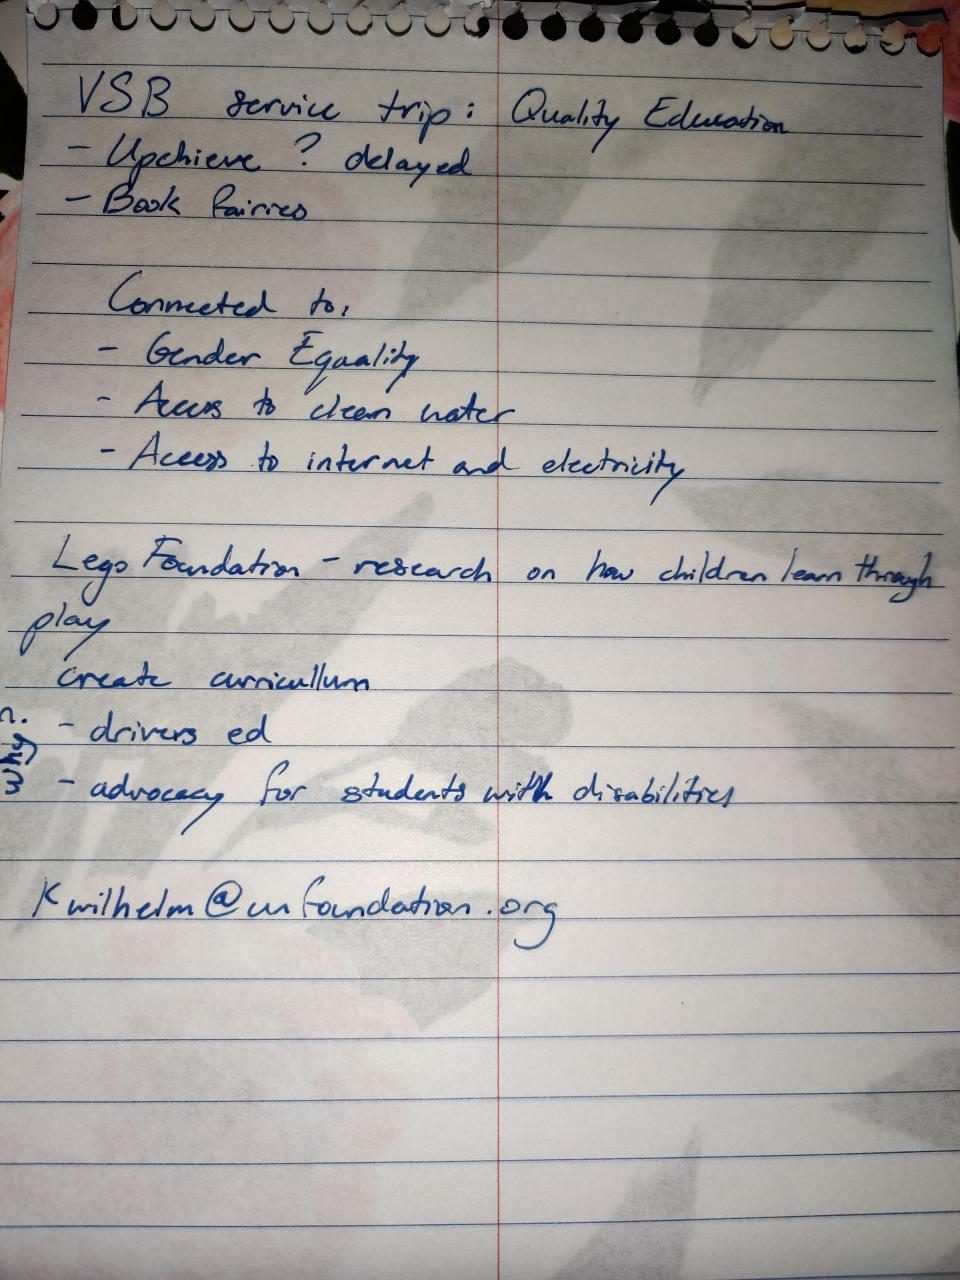 VSB service trip: Quality Education
- Upchieve ? delayed
- Book Fairies
Connected to:
- Gender Equality
- Access to clean water
- Access to internet and electricity
Lego Foundation - research on how children learn through
play
create curricullum
- drivers ed
- advocacy for students with disabilities
why
Kwilhelm@unfoundation.org